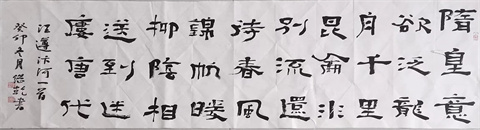 隋皇意
欲泛龍
舟千里
昆侖水
別流還
待春風
錦帆暖
柳陰相
送到迷
廔唐代
汪遵汴河一首
癸卯冬月 書